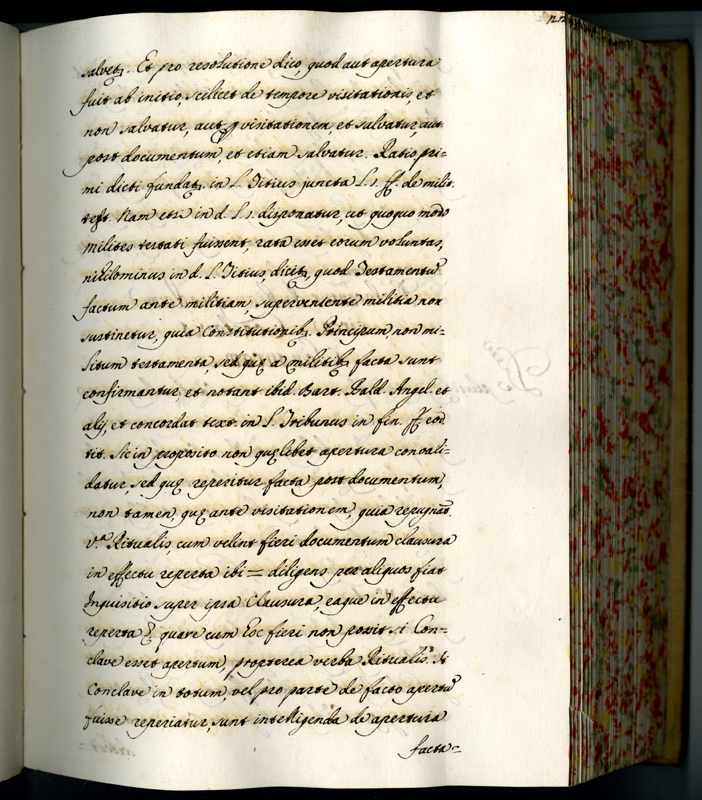 salvetꝫ. Et pro resolutione dico, quod aut apertura
fuit ab initio, scilicet de tempore visitationis, et
non salvatur, aut visitationem, et salvatur, aut
post documentum, et etiam salvatur. Ratio pri=
mi dicti fundatꝫ in L. Titius juncta L. 1. ff. de milit.
test. Nam etsi in d. L. 1. disponatur, ut quoquo modo
milites testati fuissent, rata esset eorum voluntas,
nihilominus in d. L. Titius, dicitꝫ quod Testamentũ
factum ante militiam, superveniente militia non
sustinetur, quia Constitutionibꝫ Principum, non mi=
litum testamenta sed quę a militibꝫ facta sunt
confirmantur et notant ibid. Bart. Bald. Angel. et
alij, et concordat text. in L. Tribunus in fin. ff. eod.
tit. Sic in proposito non quęlibet apertura convali=
datur, sed quę reperitur facta post documentum,
non tamen, quę ante visitationem, quia repugnãt
v.ª Ritualis, cum velint fieri documentum clausura
in effectu reperta ibi = diligens per aliquos fiat
Inquisitio super ipsa Clausura, eaque in effectu
reperta quare cum hoc fieri non possit si Con=
clave esset apertum, propterea verba Ritualis. Si
Conclave in totum, vel pro parte de facto apertũ
fuisse reperiatur, sunt intelligenda de apertura
facta=